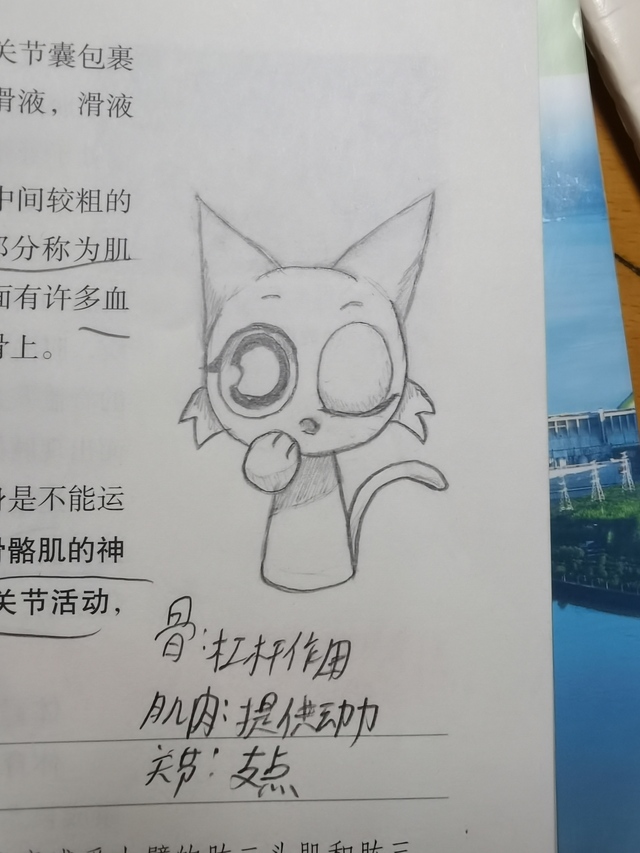 关节囊包裹
滑液，滑液
中间较粗的
部分称为肌
面有许多血
骨上。
身是不能运
骨骼肌的神
关节活动，
骨：杠杆作用
肌肉：提供动力
关节：支点